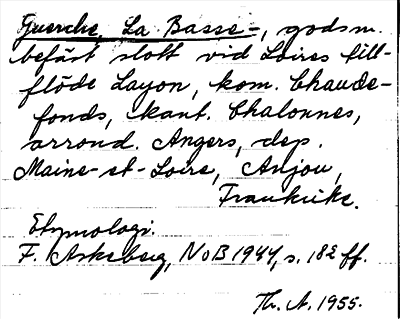 Guerche, La Basse-, godsm.
befäst slott vid Loires till-
flöde Layon, kom. Chaude-
fonds, kant. Chalonnes,
arrond. Angers, dep.
Maine-et-Loire, Anjou,
Frankrike.
Etymologi.
F. Askeberg, NoB 1944, s. 182 ff.
Th. A. 1955.